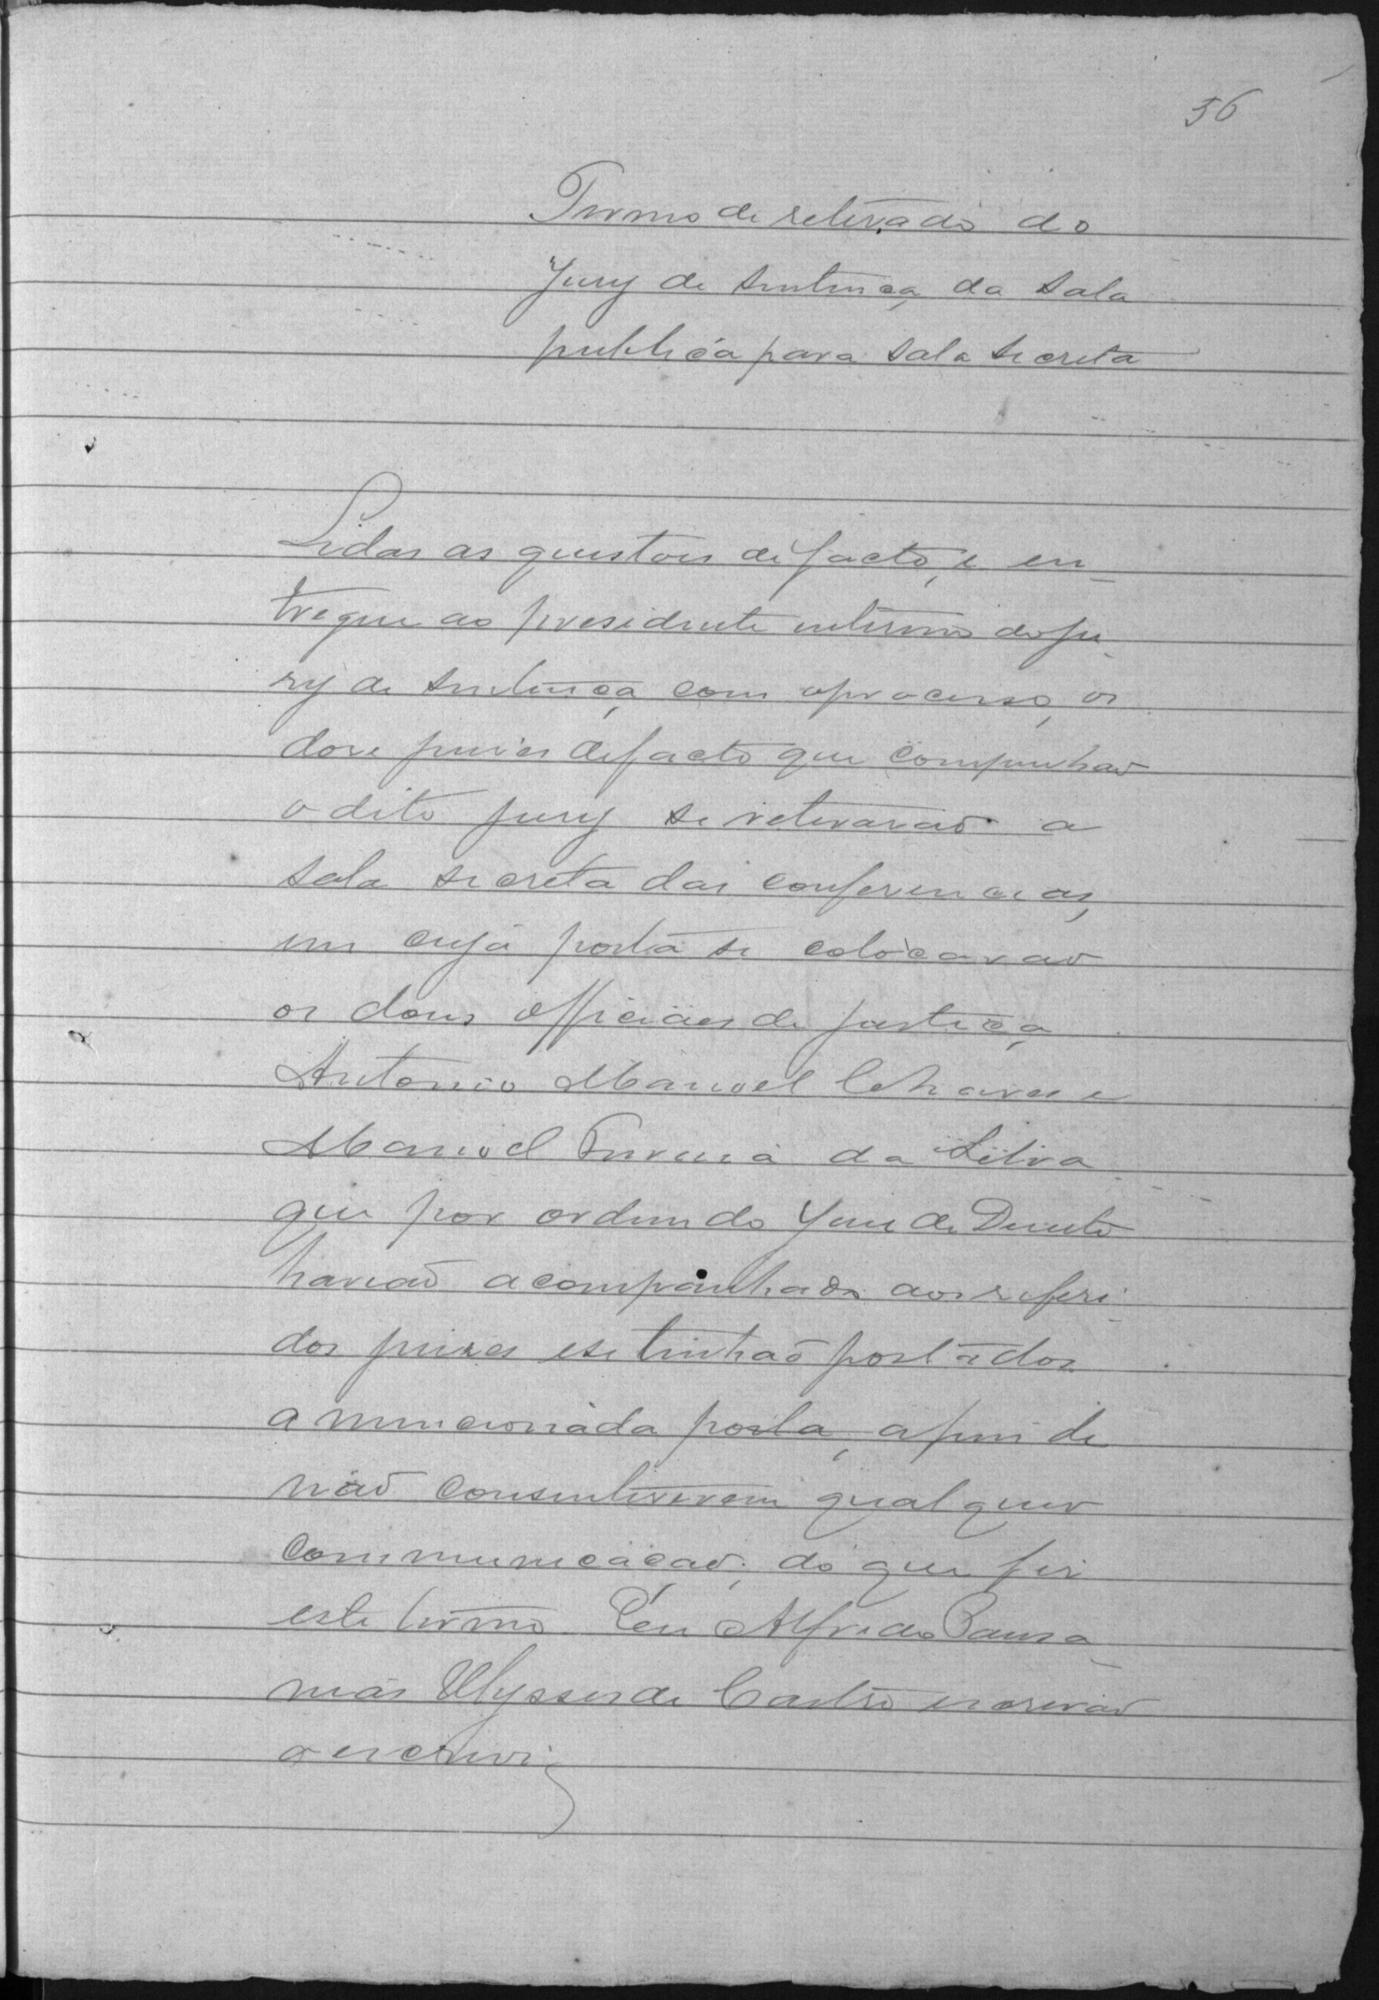 56
Termo de retirada do
Jury de sentença da sala
publica para sala secreta
Lidas as questois de facto, e en-
tregue ao presidente interino do ju-
ry de sentença, com o processo, os
dose juises de facto que compunhaõ
o dito jury se retiraraõ a
sala secreta das conferencias,
em cuja porta se colocaraõ
os dous officiaes de justiça
Antonio Manoel Chaves e
Manoel Pereira da Silva
que por ordem do Juis de Direito
haviaõ acompanhado aos referi-
dos juises e se tinhaõ postados
a mencionada porta, afim de
naõ consentirerem qualquer
communicaçaõ; do que fis
este termo. Eu Alfredo Pausa-
nias Ulysses de Castro escrivaõ
o escrevi